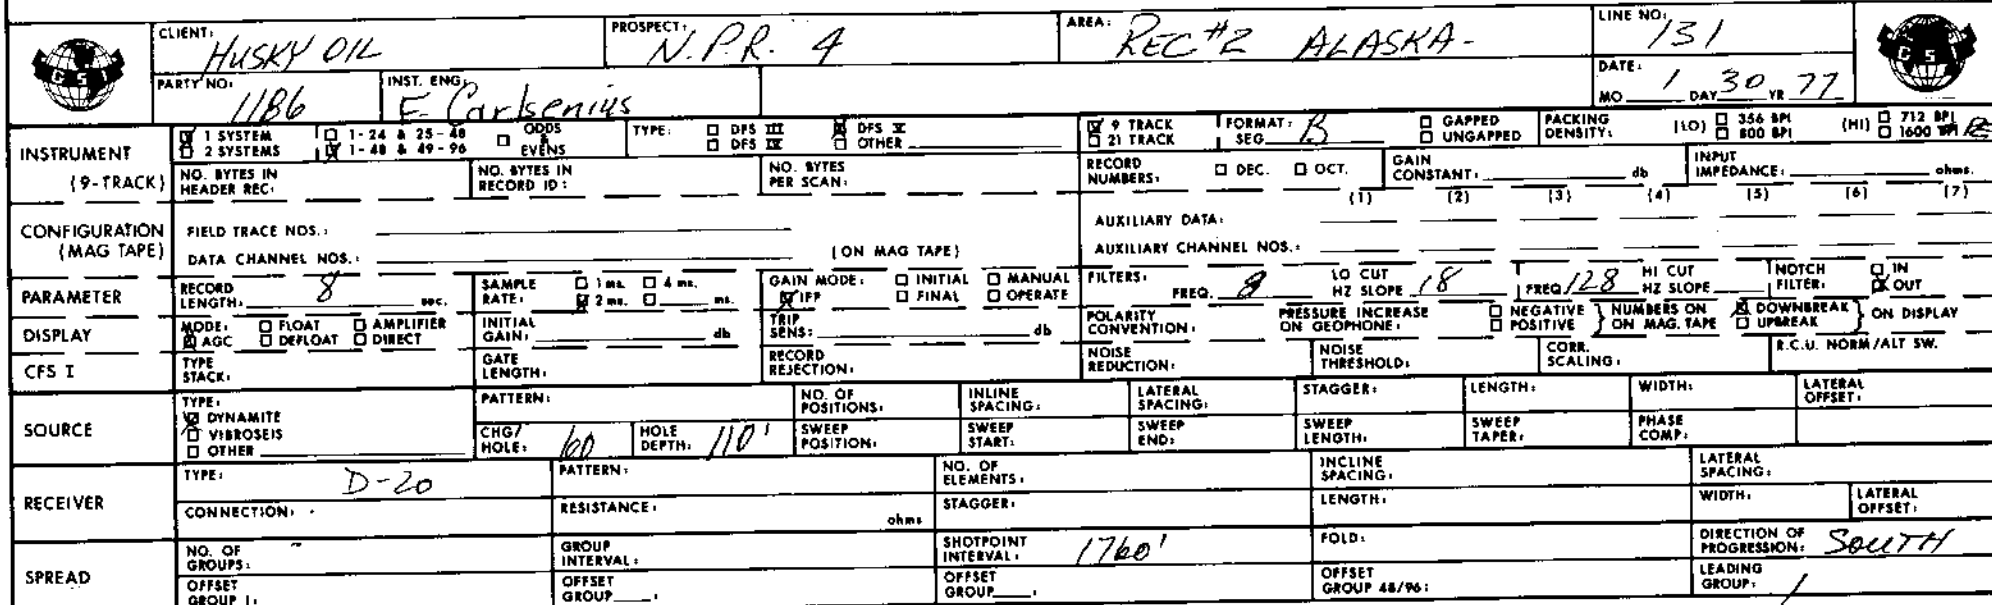 CLIENT: HUSKY OIL PROSPECT: N.P.R. 4 AREA: REC #2 ALASKA- LINE NO: 131
GSI GSI
PARTY NO: 1186 INST. ENG: E. Carlsenius DATE: MO 1 DAY 30 YR 77
INSTRUMENT (9-TRACK) 1 SYSTEM 1-24 & 25-48 ODDS & EVENS TYPE: DFS III DFS V 9 TRACK FORMAT: SEG B GAPPED PACKING DENSITY: (LO) 356 BPI (HI) 712 BPI
2 SYSTEMS 1-48 & 49-96 DFS IV OTHER 21 TRACK UNGAPPED 800 BPI 1600 BPI PE
NO. BYTES IN HEADER REC: NO. BYTES IN RECORD ID: NO. BYTES PER SCAN: RECORD NUMBERS: DEC. OCT. GAIN CONSTANT: db INPUT IMPEDANCE: ohms.
(1) (2) (3) (4) (5) (6) (7)
CONFIGURATION (MAG TAPE) FIELD TRACE NOS.: AUXILIARY DATA:
DATA CHANNEL NOS.: (ON MAG TAPE) AUXILIARY CHANNEL NOS.:
PARAMETER RECORD LENGTH: 8 sec. SAMPLE RATE: 1 ms. 4 ms. 2 ms. ms. GAIN MODE: INITIAL MANUAL IFP FINAL OPERATE FILTERS: FREQ. 8 LO CUT HZ SLOPE 18 FREQ 128 HI CUT HZ SLOPE NOTCH FILTER: IN OUT
DISPLAY MODE: FLOAT AMPLIFIER AGC DEFLOAT DIRECT INITIAL GAIN: db TRIP SENS: db POLARITY CONVENTION: PRESSURE INCREASE ON GEOPHONE: NEGATIVE POSITIVE NUMBERS ON ON MAG. TAPE DOWNBREAK UPBREAK ON DISPLAY
CFS I TYPE STACK: GATE LENGTH: RECORD REJECTION: NOISE REDUCTION: NOISE THRESHOLD: CORR. SCALING: R.C.U. NORM/ALT SW.
SOURCE TYPE: DYNAMITE VIBROSEIS OTHER PATTERN: NO. OF POSITIONS: INLINE SPACING: LATERAL SPACING: STAGGER: LENGTH: WIDTH: LATERAL OFFSET:
CHG/HOLE: 60 HOLE DEPTH: 110' SWEEP POSITION: SWEEP START: SWEEP END: SWEEP LENGTH: SWEEP TAPER: PHASE COMP:
RECEIVER TYPE: D-20 PATTERN: NO. OF ELEMENTS: INCLINE SPACING: LATERAL SPACING:
CONNECTION: RESISTANCE: ohms STAGGER: LENGTH: WIDTH: LATERAL OFFSET:
SPREAD NO. OF GROUPS: GROUP INTERVAL: SHOTPOINT INTERVAL: 1760' FOLD: DIRECTION OF PROGRESSION: SOUTH
OFFSET GROUP 1: OFFSET GROUP : OFFSET GROUP : OFFSET GROUP 48/96: LEADING GROUP: 1